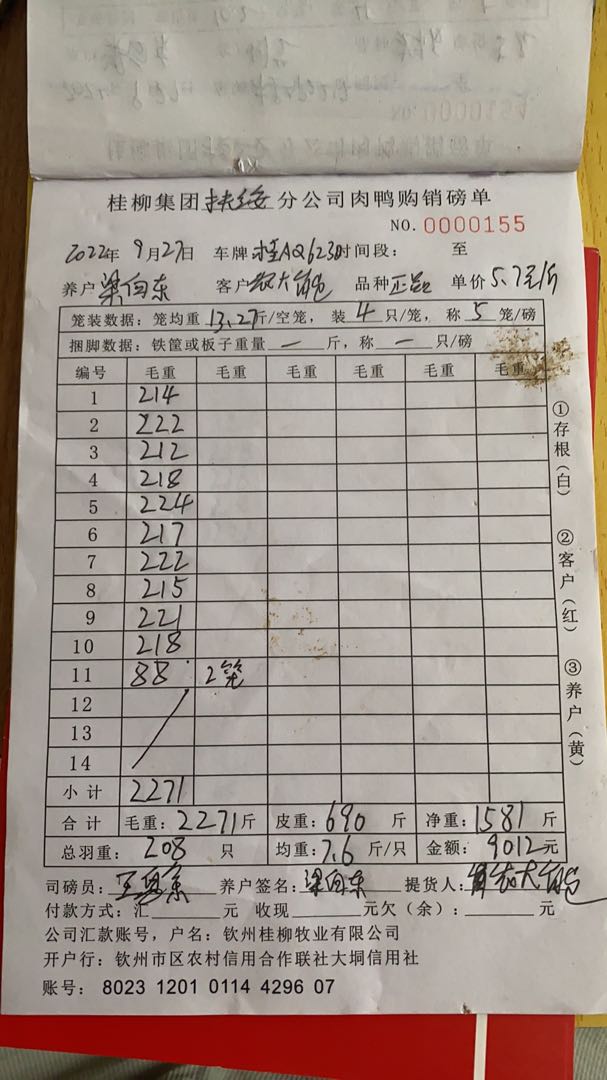 桂柳集团扶绥分公司肉鸭购销磅单
NO. 0000155
2022年 9月27日 车牌 桂AQ6230 时间段： 至
养户 梁向东 客户 农大 品种 正品 单价 5.7元/斤
笼装数据：笼均重 13.27斤/空笼，装 4 只/笼，称 5 笼/磅
捆脚数据：铁筐或板子重量 — 斤，称 — 只/磅
编号 毛重 毛重 毛重 毛重 毛重 毛重
1 214
2 222
3 212
4 218
5 224
6 217
7 222
8 215
9 221
10 218
11 88 2笼
12
13
14
小计 2271
合计 毛重：2271斤 皮重：690 斤 净重：1581 斤
总羽重： 208 只 均重：7.6 斤/只 金额： 9012元
司磅员： 养户签名：梁向东 提货人：农大
付款方式：汇 元 收现 元欠（余）： 元
公司汇款账号，户名：钦州桂柳牧业有限公司
开户行：钦州市区农村信用合作联社大垌信用社
账号： 8023 1201 0114 4296 07
①存根（白）
②客户（红）
③养户（黄）